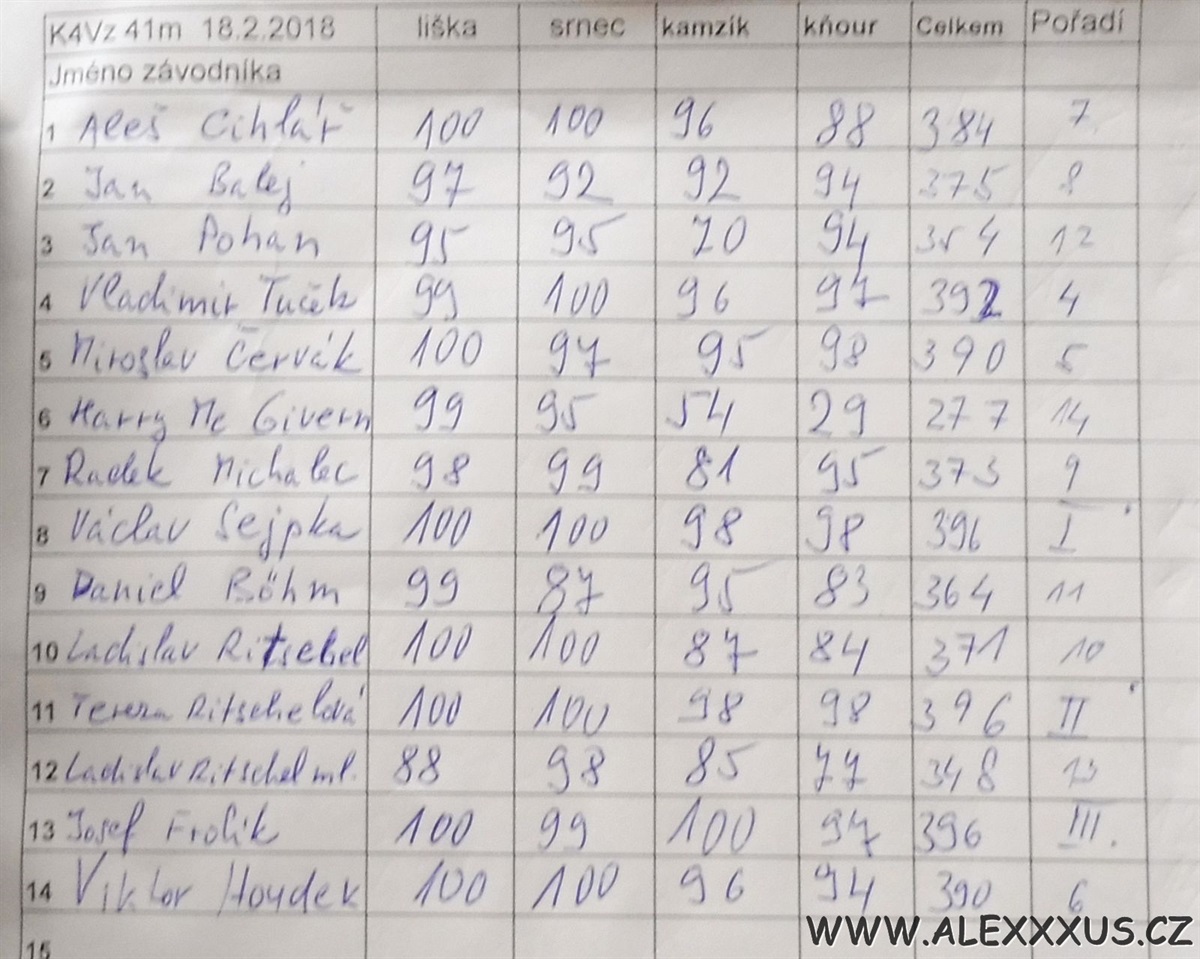 K4Vz 41m 18.2.2018 liška srnec kamzík kňour Celkem Pořadí
Jméno závodníka
1 Aleš Cihlář 100 100 96 88 384 7
2 Jan Balej 97 92 92 94 375 8
3 Jan Pohan 95 95 70 94 354 12
4 Vladimir Tuček 99 100 96 97 392 4
5 Miroslav Červák 100 97 95 98 390 5
6 Harry Mc Givern 99 95 54 29 277 14
7 Radek Michalec 98 99 81 95 373 9
8 Václav Sejpka 100 100 98 98 396 I
9 Daniel Böhm 99 87 95 83 364 11
10 Ladislav Ritschel 100 100 87 84 371 10
11 Tereza Ritschelová 100 100 98 98 396 II
12 Ladislav Ritschel ml. 88 98 85 77 348 13
13 Josef Frolik 100 99 100 97 396 III.
14 Viktor Houdek 100 100 96 94 390 6
15
WWW.ALEXXXUS.CZ